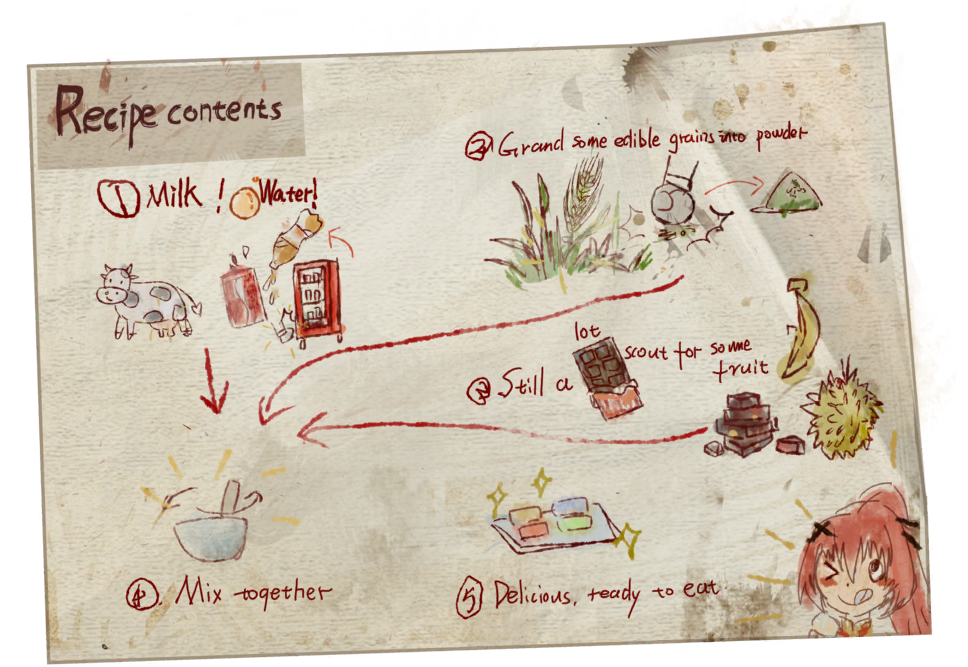 Recipe contents
① Milk! Water!
② Grand some edible grains into powder
③ Still a lot scout for some
fruit
④. Mix together
⑤ Delicious, ready to eat